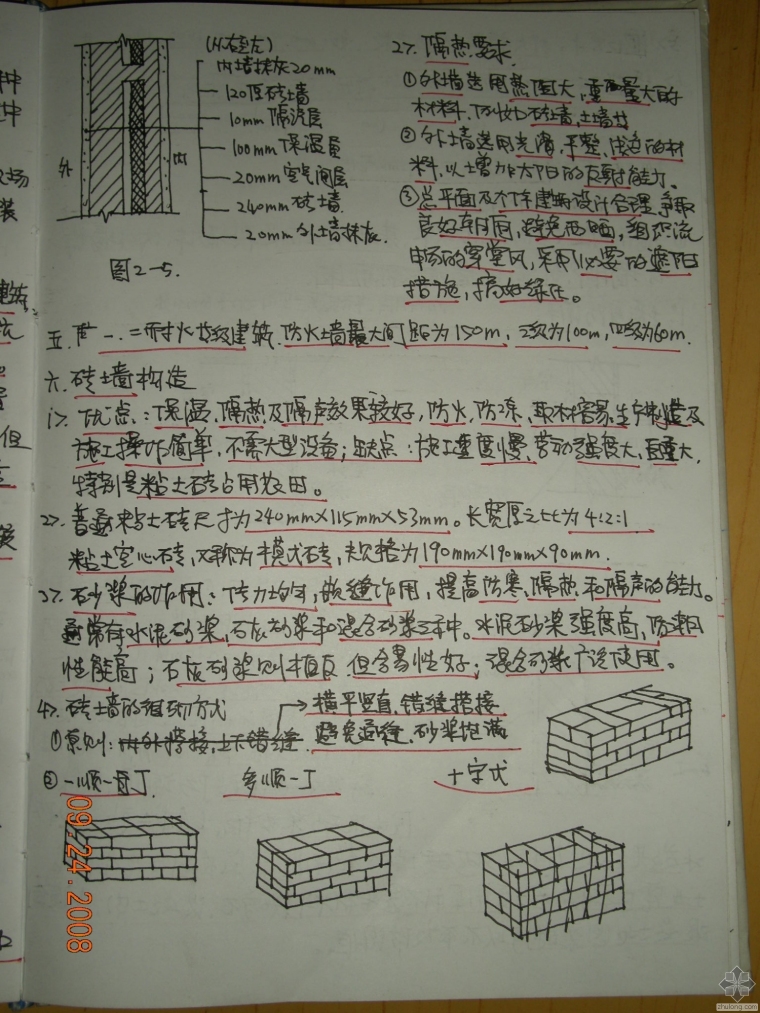 (从右至左)
内墙抹灰20mm
120厚砖墙
10mm隔汽层
100mm保温层
20mm空气间层
240mm砖墙
20mm外墙抹灰.
外
内
图2-5.
2>. 隔热要求.
①外墙选用热阻大,重量大的
材料,例如砖墙,土墙等
②外墙选用光滑、平整、浅色的材
料,以增加太阳的反射能力。
③总平面及个体建筑设计合理,争取
良好朝向,避免西晒,组织流
畅的穿堂风,采用必要的遮阳
措施,搞好绿化。
五. 一.二耐火等级建筑,防火墙最大间距为150m,三级为100m,四级为60m.
六.砖墙构造
1>. 优点:保温、隔热及隔声效果较好,防火,防冻,取材容易,生产制造及
施工操作简单,不需大型设备;缺点:施工速度慢,劳动强度大,自重大,
特别是粘土砖占用农田。
2>. 普通粘土砖尺寸为240mm×115mm×53mm。长宽厚之比为4:2:1
粘土空心砖,又称为模式砖,规格为190mm×190mm×90mm.
3>. 砂浆的作用:传力均匀,嵌缝作用,提高防寒、隔热和隔声的能力。
通常有水泥砂浆,石灰砂浆和混合砂浆三种。水泥砂浆强度高,防潮
性能高;石灰砂浆则相反,但和易性好;混合砂浆广泛使用。
4>. 砖墙的组砌方式
横平竖直,错缝搭接
①原则:内外搭接,上下错缝.避免通缝,砂浆饱满
②一顺一丁
多顺一丁
十字式
09.24.2008
zhulong.com